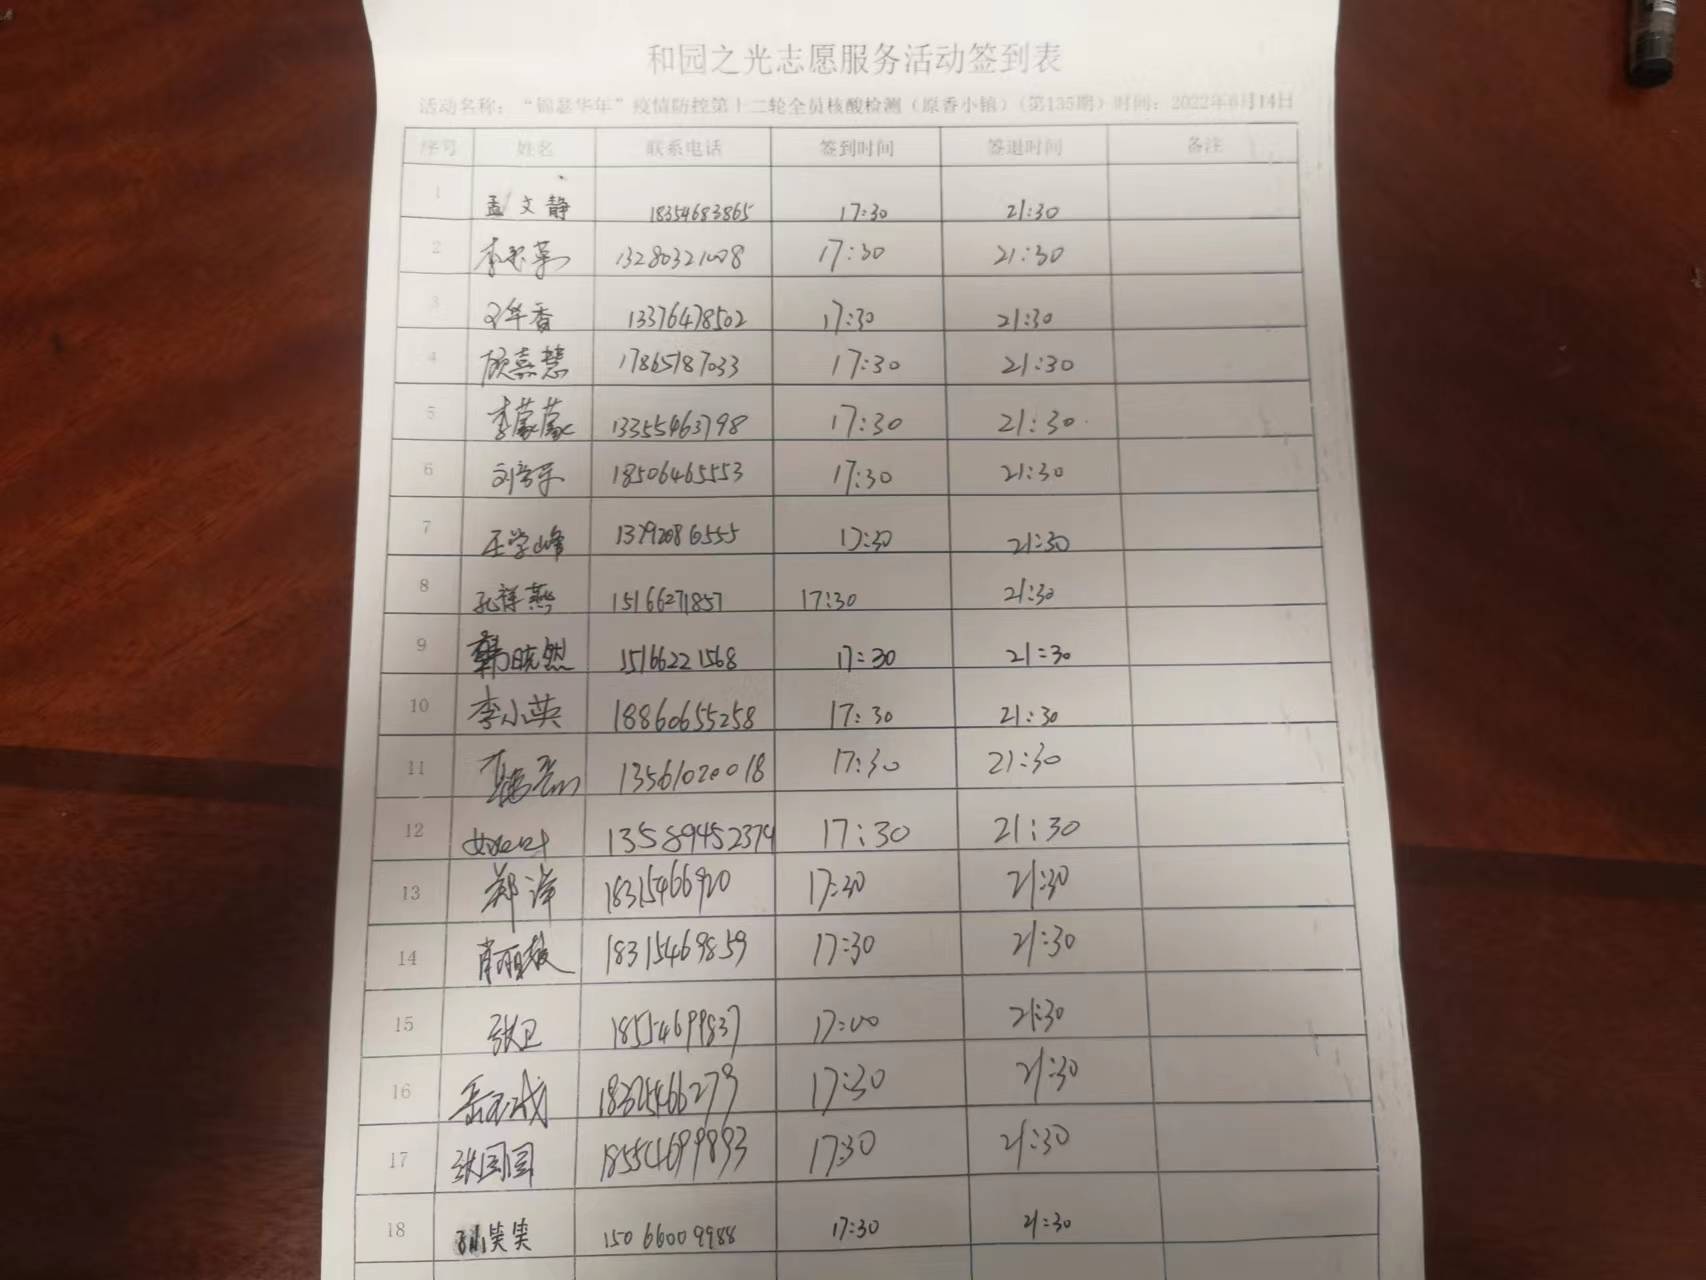 和园之光志愿服务活动签到表
活动名称：“锦瑟华年”疫情防控第十二轮全员核酸检测（原香小镇）（第135期）时间：2022年6月14日
序号 姓名 联系电话 签到时间 签退时间 备注
1 孟文静 18354683865 17:30 21:30
2 13280321008 17:30 21:30
3 华香 13376478502 17:30 21:30
4 顾熹慧 17865187033 17:30 21:30
5 李蒙蒙 13355463798 17:30 21:30
6 18506465553 17:30 21:30
7 王学峰 13792086555 17:30 21:30
8 孔祥燕 15166271857 17:30 21:30
9 韩晓然 15166221568 17:30 21:30
10 李小英 18860655258 17:30 21:30
11 13561020018 17:30 21:30
12 13589452374 17:30 21:30
13 郑泽 17:30 21:30
14 肖丽敏 18315469859 17:30 21:30
15 张卫 18554699837 17:00 21:30
16 17:30 21:30
17 张园园 18554699893 17:30 21:30
18 孙笑笑 15066009988 17:30 21:30